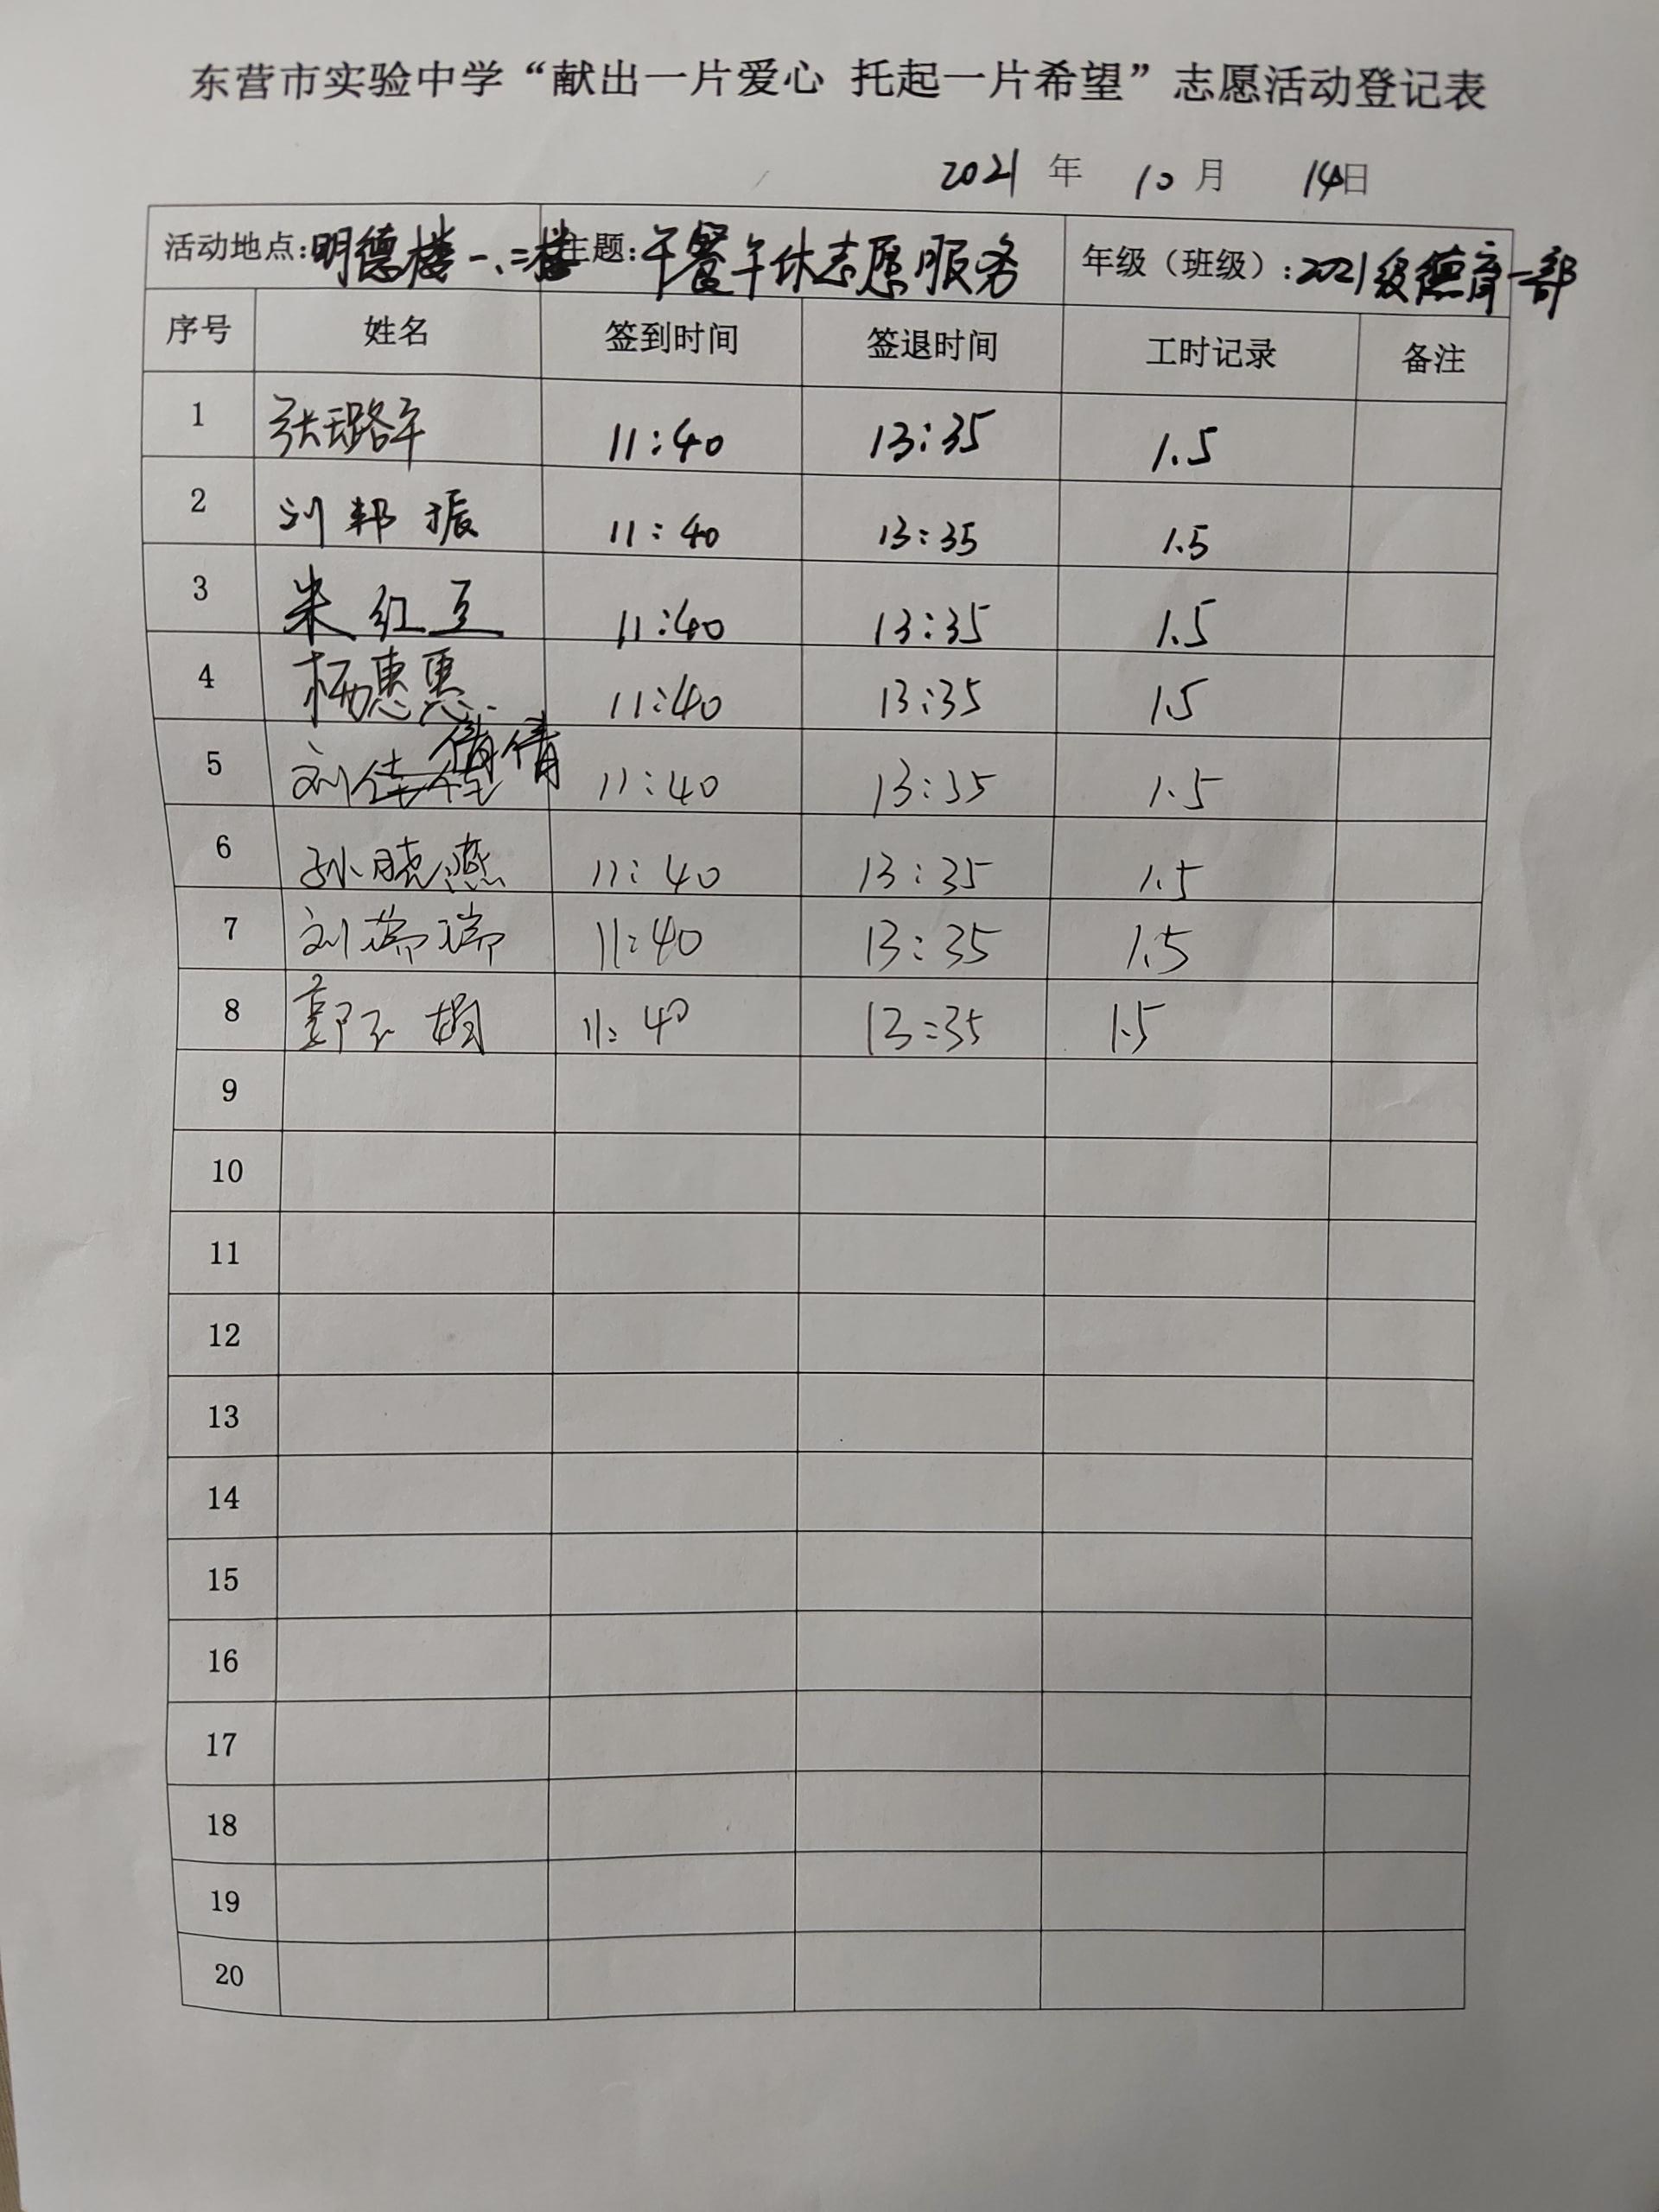 东营市实验中学“献出一片爱心 托起一片希望”志愿活动登记表
2021 年 10 月 14日
活动地点:明德楼一、二楼 主题:午餐午休志愿服务 年级（班级）:2021级德育一部
序号 姓名 签到时间 签退时间 工时记录 备注
1 张璐年 11:40 13:35 1.5
2 刘邦振 11:40 13:35 1.5
3 米红豆 11:40 13:35 1.5
4 杨惠惠 11:40 13:35 1.5
5 刘倩倩 11:40 13:35 1.5
6 孙晓燕 11:40 13:35 1.5
7 刘瑞瑞 11:40 13:35 1.5
8 郭玉娟 11:40 13:35 1.5
9
10
11
12
13
14
15
16
17
18
19
20